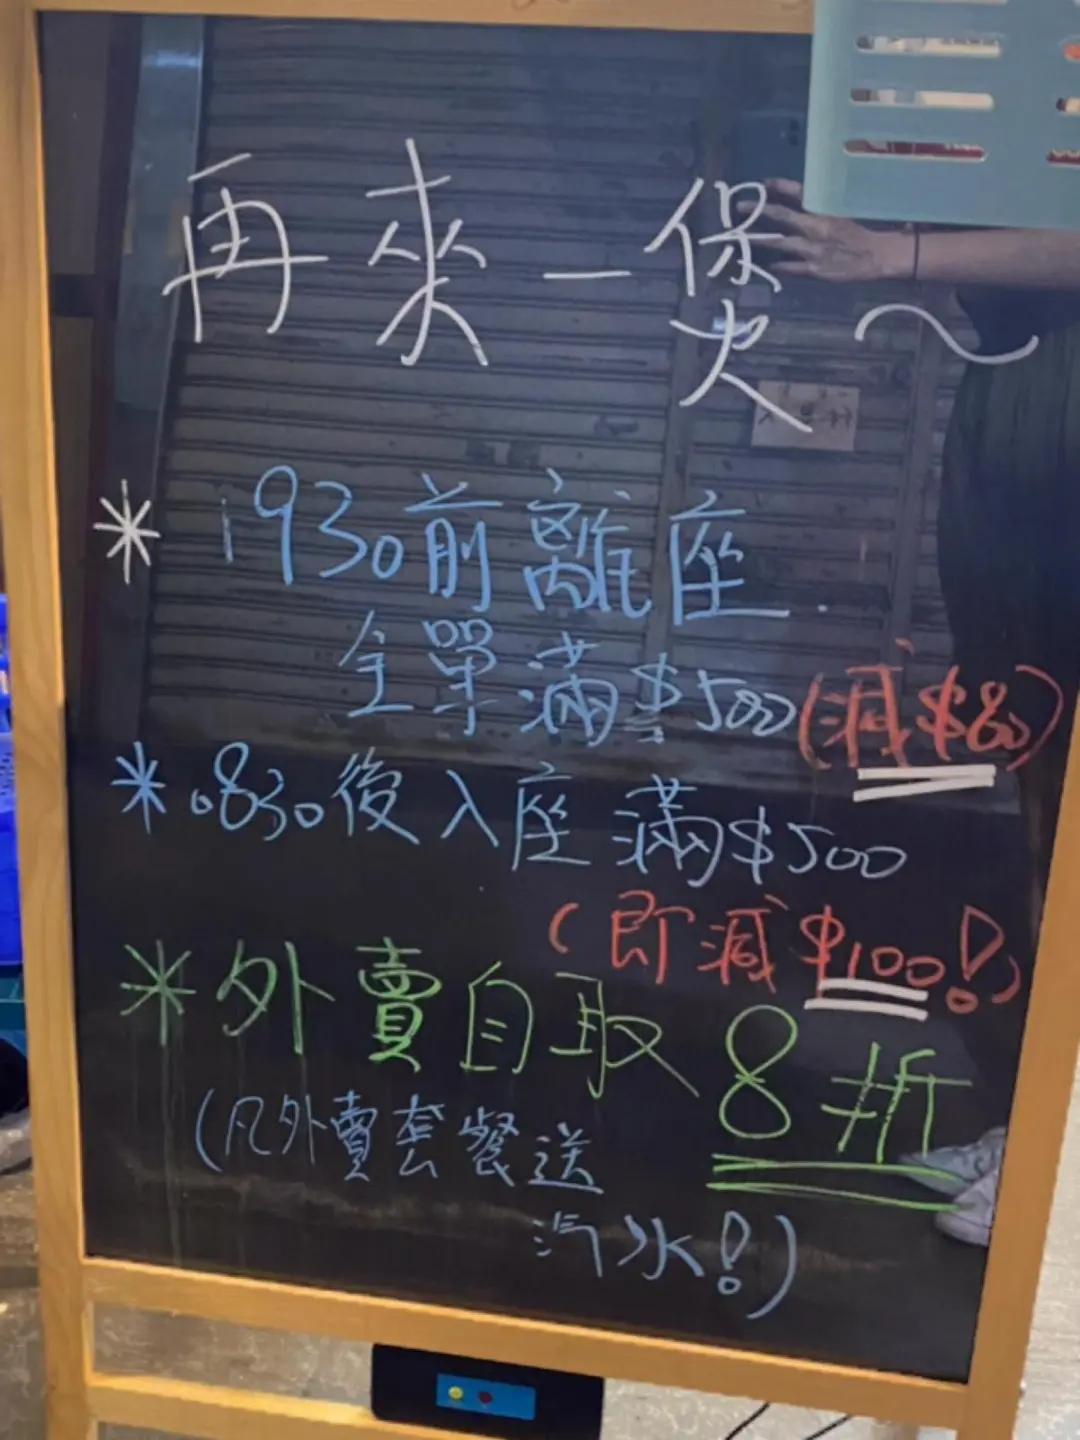 再來一煲～
* 1930前離座.
全單滿$500(減$80)
* 0830後入座滿$500
(即減$100!)
* 外賣自取8折
(凡外賣套餐送
汽水!)